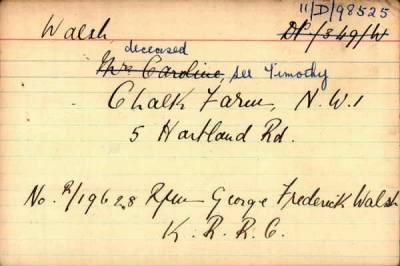 11/D/98525
Walsh DP/849/W
deceased
Mrs Caroline, see Timothy
Chalk Farm, N.W.1
5 Hartland Rd.
No. R/19628 Rfmn George Frederick Walsh
K. R. R. C.